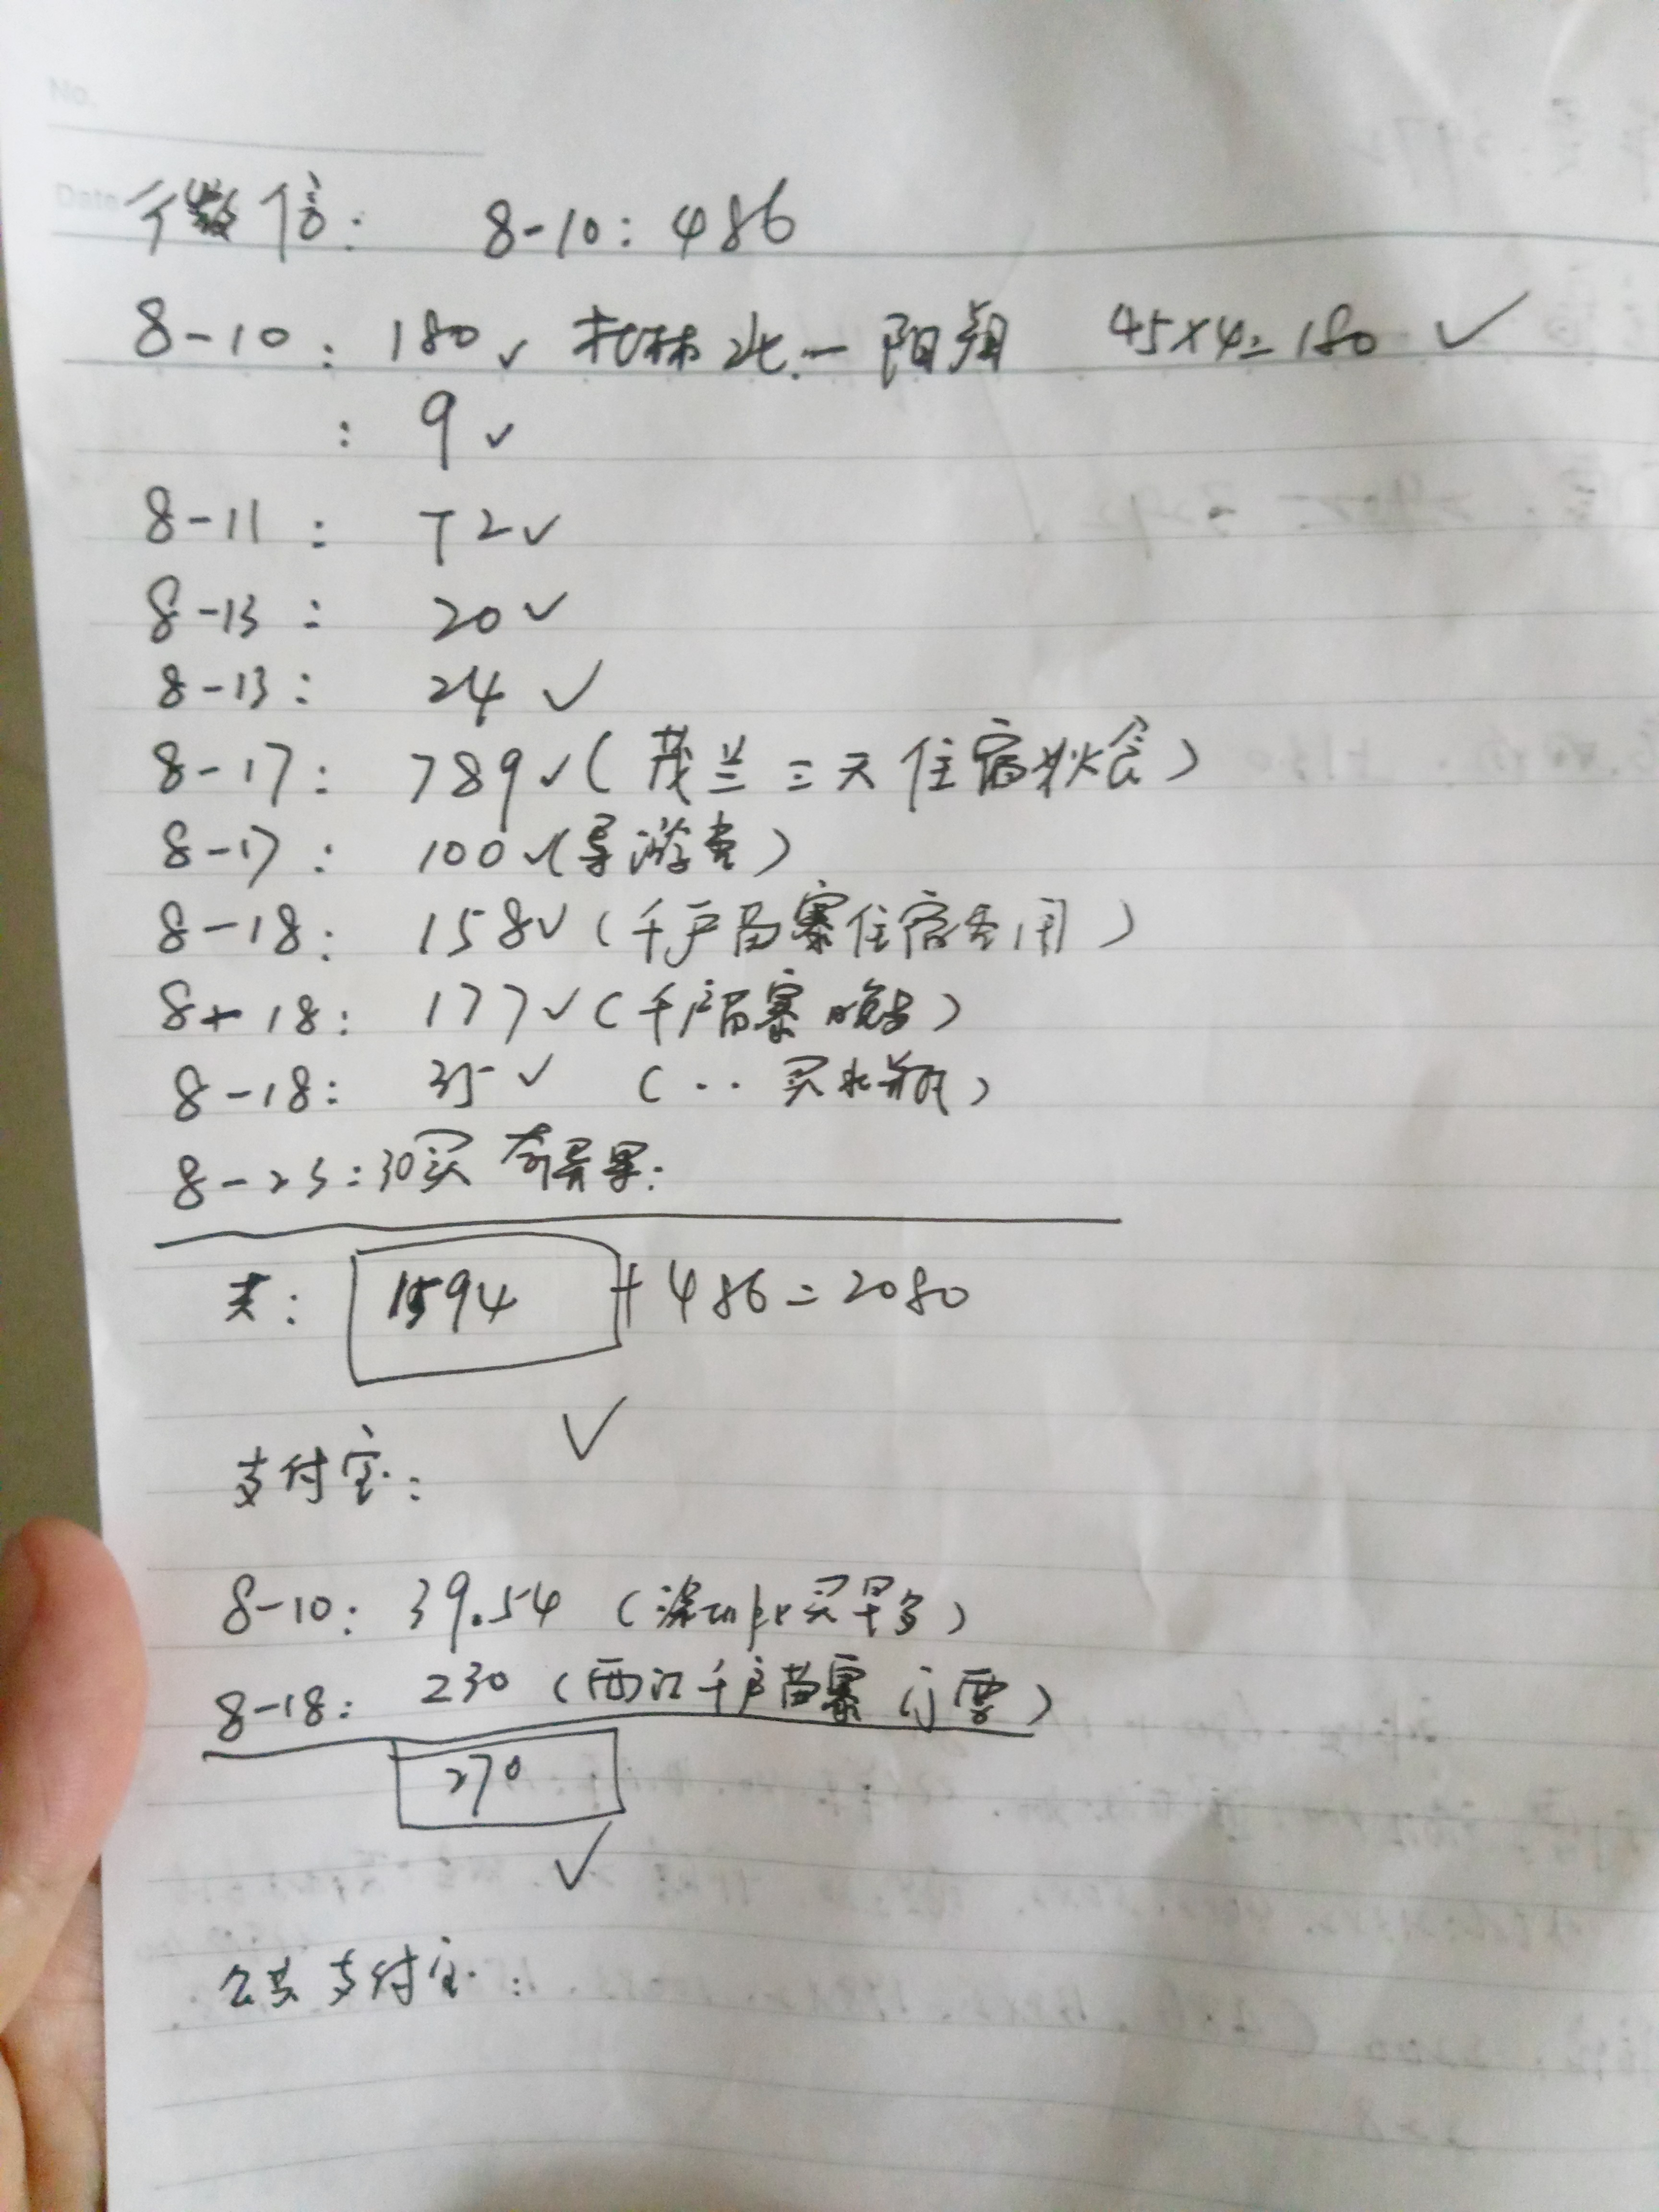 No.
Date 微信: 8-10: 486
8-10: 180 ✓ 桂林北-阳朔 45×4=180 ✓
: 9 ✓
8-11: 72 ✓
8-13: 20 ✓
8-13: 24 ✓
8-17: 789 ✓ (茂兰三天住宿伙食)
8-17: 100 ✓ (导游费)
8-18: 158 ✓ (千户苗寨住宿费用)
8-18: 177 ✓ (千户苗寨晚餐)
8-18: 35 ✓ (‥ 买水)
8-23: 30买奇异果:
共: 1594 + 486=2080
✓
支付宝:
8-10: 39.54 (深圳北买早)
8-18: 230 (西江千户苗寨门票)
270
✓
公共支付宝: